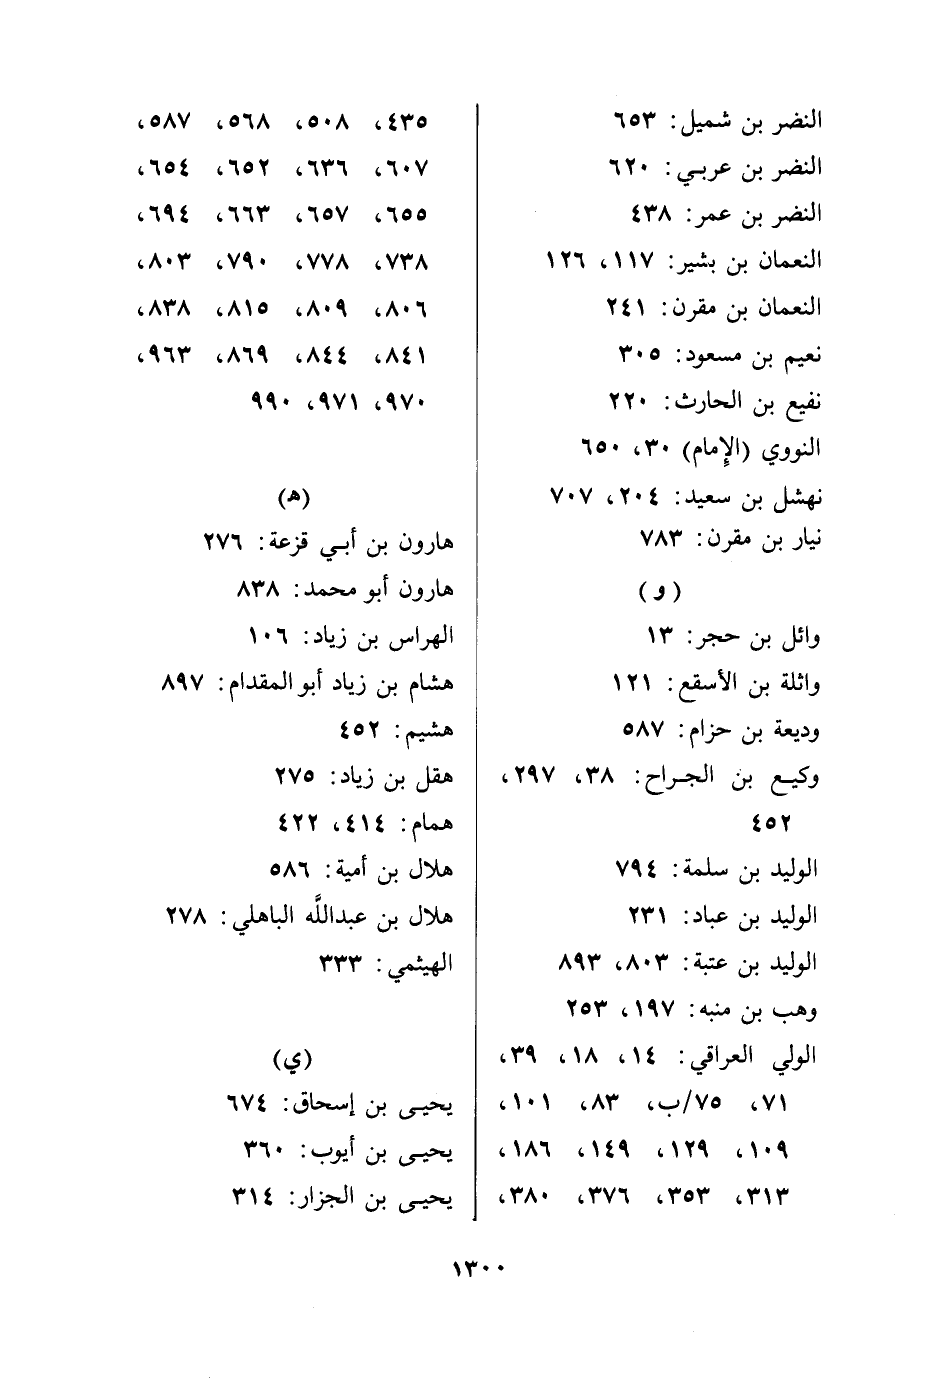 النضر بن شميل: ٦٥٣
النضر بن عربي: ٦٢٠
النضر بن عمر: ٤٣٨
النعمان بن بشير: ١١٧، ١٢٦
النعمان بن مقرن: ٢٤١
نعيم بن مسعود: ٣٠٥
نفيع بن الحارث: ٢٢٠
النووي (الإمام) ٣٠، ٦٥٠
نهشل بن سعيد: ٢٠٤، ٧٠٧
نيار بن مقرن: ٧٨٣
(و)
وائل بن حجر: ١٣
واثلة بن الأسقع: ١٢١
وديعة بن حزام: ٥٨٧
وكيع بن الجراح: ٣٨، ٢٩٧،
٤٥٢
الوليد بن سلمة: ٧٩٤
الوليد بن عباد: ٢٣١
الوليد بن عتبة: ٨٠٣، ٨٩٣
وهب بن منبه: ١٩٧، ٢٥٣
الولي العراقي: ١٤، ١٨، ٣٩،
٧١، ٧٥/ب، ٨٣، ١٠١،
١٠٩، ١٢٩، ١٤٩، ١٨٦،
٣١٣، ٣٥٣، ٣٧٦، ٣٨٠،
٤٣٥، ٥٠٨، ٥٦٨، ٥٨٧،
٦٠٧، ٦٣٦، ٦٥٢، ٦٥٤،
٦٥٥، ٦٥٧، ٦٦٣، ٦٩٤،
٧٣٨، ٧٧٨، ٧٩٠، ٨٠٣،
٨٠٦، ٨٠٩، ٨١٥، ٨٣٨،
٨٤١، ٨٤٤، ٨٦٩، ٩٦٣،
٩٧٠، ٩٧١، ٩٩٠
(ه)
هارون بن أبي قزعة: ٢٧٦
هارون أبو محمد: ٨٣٨
الهراس بن زياد: ١٠٦
هشام بن زياد أبو المقدام: ٨٩٧
هشيم: ٤٥٢
هقل بن زياد: ٢٧٥
همام: ٤١٤، ٤٢٢
هلال بن أمية: ٥٨٦
هلال بن عبدالله الباهلي: ٢٧٨
الهيثمي: ٣٣٣
(ي)
يحيى بن إسحاق: ٦٧٤
يحيى بن أيوب: ٣٦٠
يحيى بن الجزار: ٣١٤
١٣٠٠